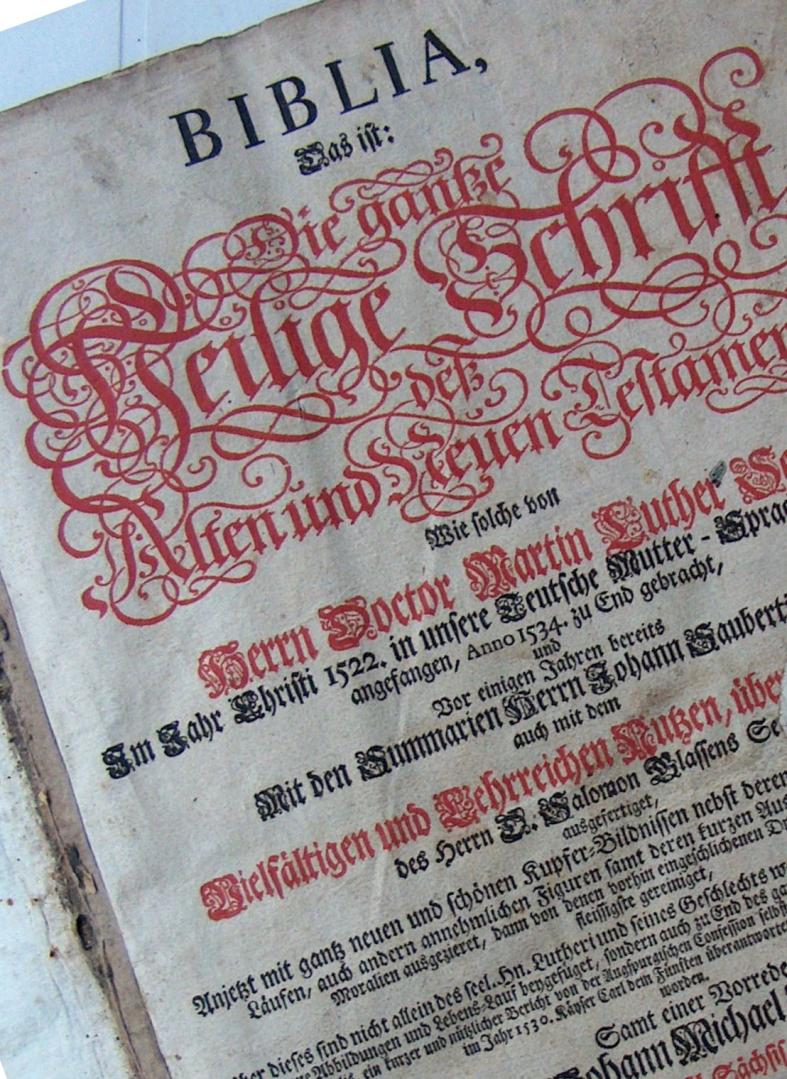 BIBLIA,
Das ist:
Die gantze
Heilige Schrifft
deß
Alten und Neuen Testamen
Wie solche von
Herrn Doctor Martin Luther Se
Im Jahr Christi 1522. in unsere Teutsche Mutter-Sprac
angefangen, Anno 1534. zu End gebracht,
und
Vor einigen Jahren bereits
Mit den Summarien Herrn Johann Sauberti
auch mit dem
Vielfältigen und Lehrreichen Nutzen, über
des Herrn D. Salomon Glassens Se
ausgefertiget,
Anjetzt mit gantz neuen und schönen Kupfer-Bildnissen nebst deren
Läufen, auch andern annehmlichen Figuren samt deren kurzen Aus
Moralien ausgezieret, dann von denen vorhin eingeschlichenen Dr
fleissigste gereiniget,
ber dieses sind nicht allein des seel. Hn. Lutheri und seines Geschlechts w
Abbildungen und Lebens-Lauf beygefüget, sondern auch zu End des ga
ein kurzer und nützlicher Bericht von der Augspurgischen Confession selbst
im Jahr 1530. Kayser Carl dem Fünften überantworte
worden.
Samt einer Vorrede
Johann Michael
Sächsis